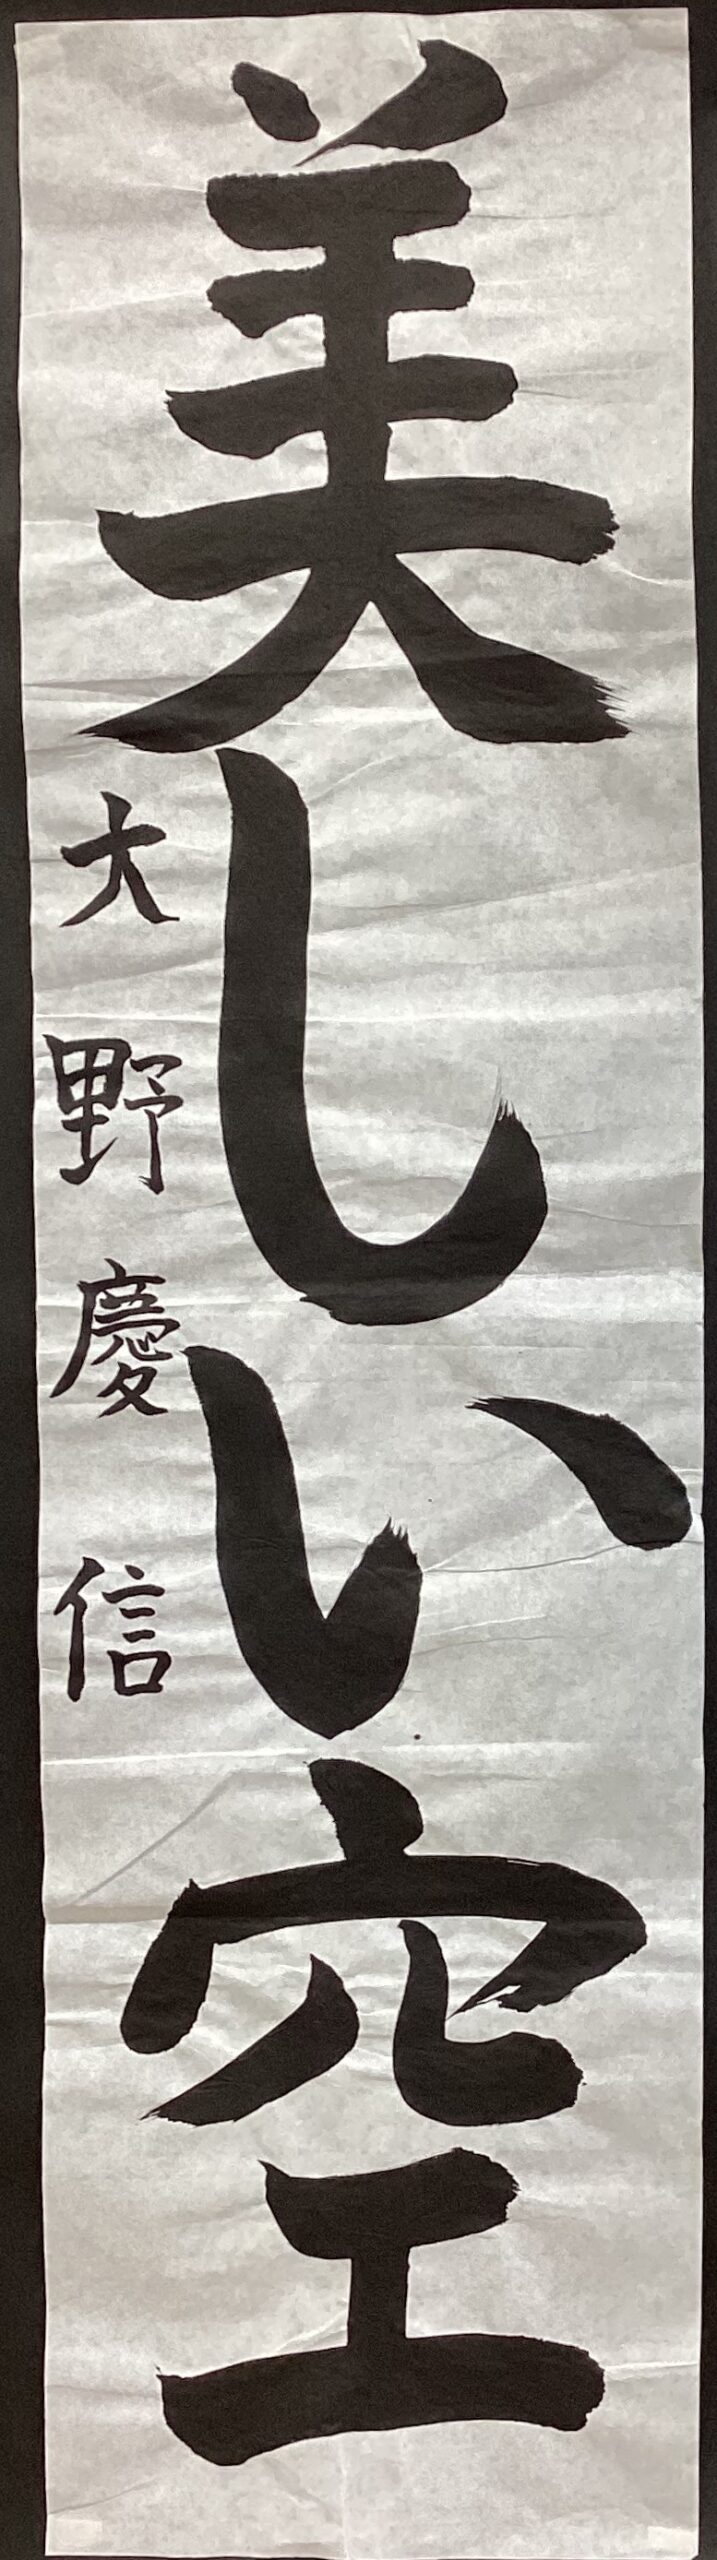 美しい空
大野慶信